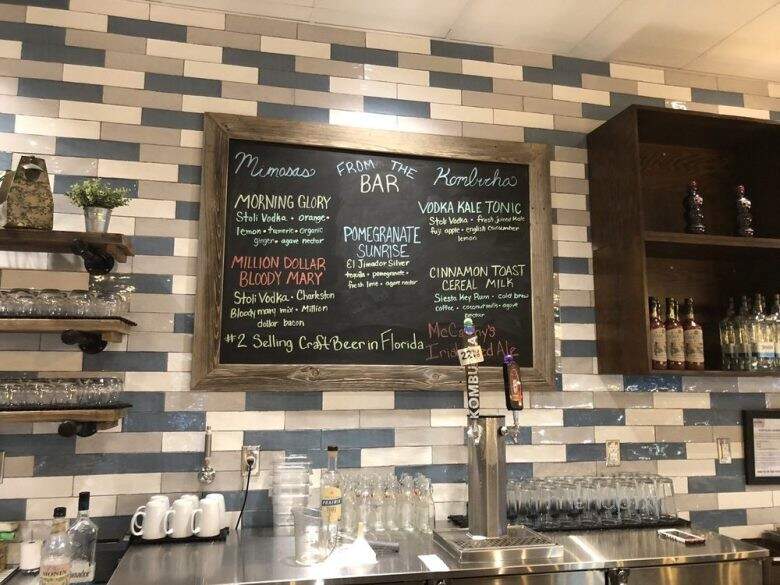 Mimosas
FROM THE
BAR
Kombucha
MORNING GLORY
Stoli Vodka • orange •
lemon • tumeric • organic
ginger • agave nectar
MILLION DOLLAR
BLOODY MARY
Stoli Vodka • Charleston
Bloody mary mix • Million
dollar bacon
POMEGRANATE
SUNRISE
El Jimador Silver
tequila • pomegranate •
fresh lime • agave nectar
VODKA KALE TONIC
Stoli Vodka • fresh juiced Kale
fuji apple • english cucumber
lemon
CINNAMON TOAST
CEREAL MILK
Siesta Key Rum • cold brew
coffee • coconut milk • agave
nectar
#2 Selling Craft Beer in Florida
Irish Red Ale
KOMBU